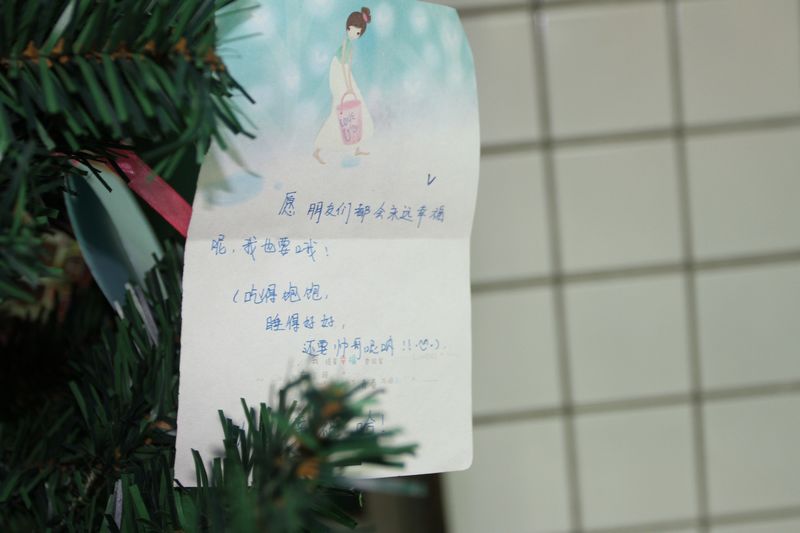 LOVE
愿 朋友们都会永远幸福
呢,我也要哦!
(吃得饱饱,
睡得好好,
还要帅哥呢哟!!
哈!